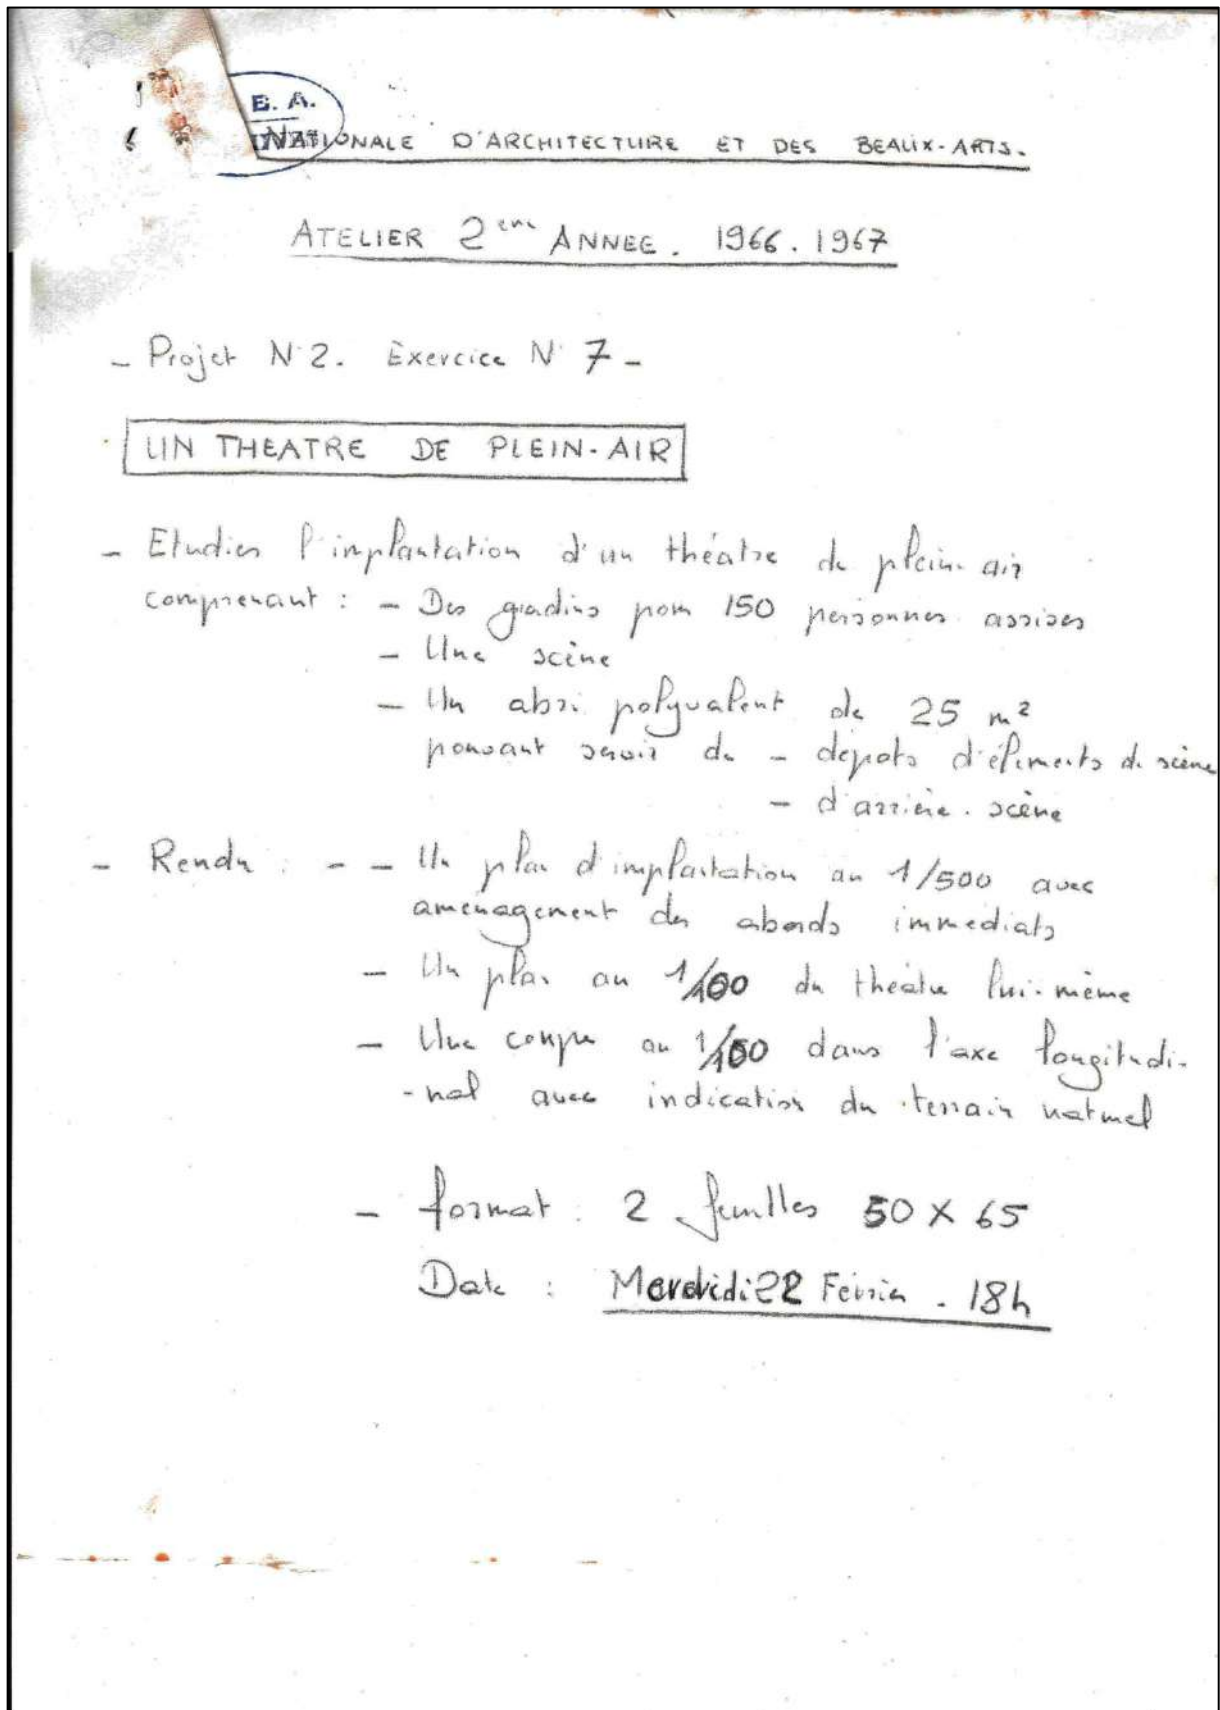 E. A.
NATIONALE D'ARCHITECTURE ET DES BEAUX-ARTS.
ATELIER 2eme ANNEE. 1966.1967
- Projet N°2. Exercice N° 7 -
UN THEATRE DE PLEIN-AIR
- Etudier l'implantation d'un théatre de plein-air
comprenant : - Des gradins pour 150 personnes assises
- Une scène
- Un abri polyvalent de 25 m²
pouvant servir de - dépots d'éléments de scène
- d'arrière-scène
- Rendu : - - Un plan d'implantation au 1/500 avec
aménagement des abords immediats
- Un plan au 1/100 du théatre lui-même
- Une coupe au 1/100 dans l'axe longitudi-
-nal avec indication du terrain naturel
- format : 2 feuilles 50 X 65
Date : Mercredi 22 Février . 18h